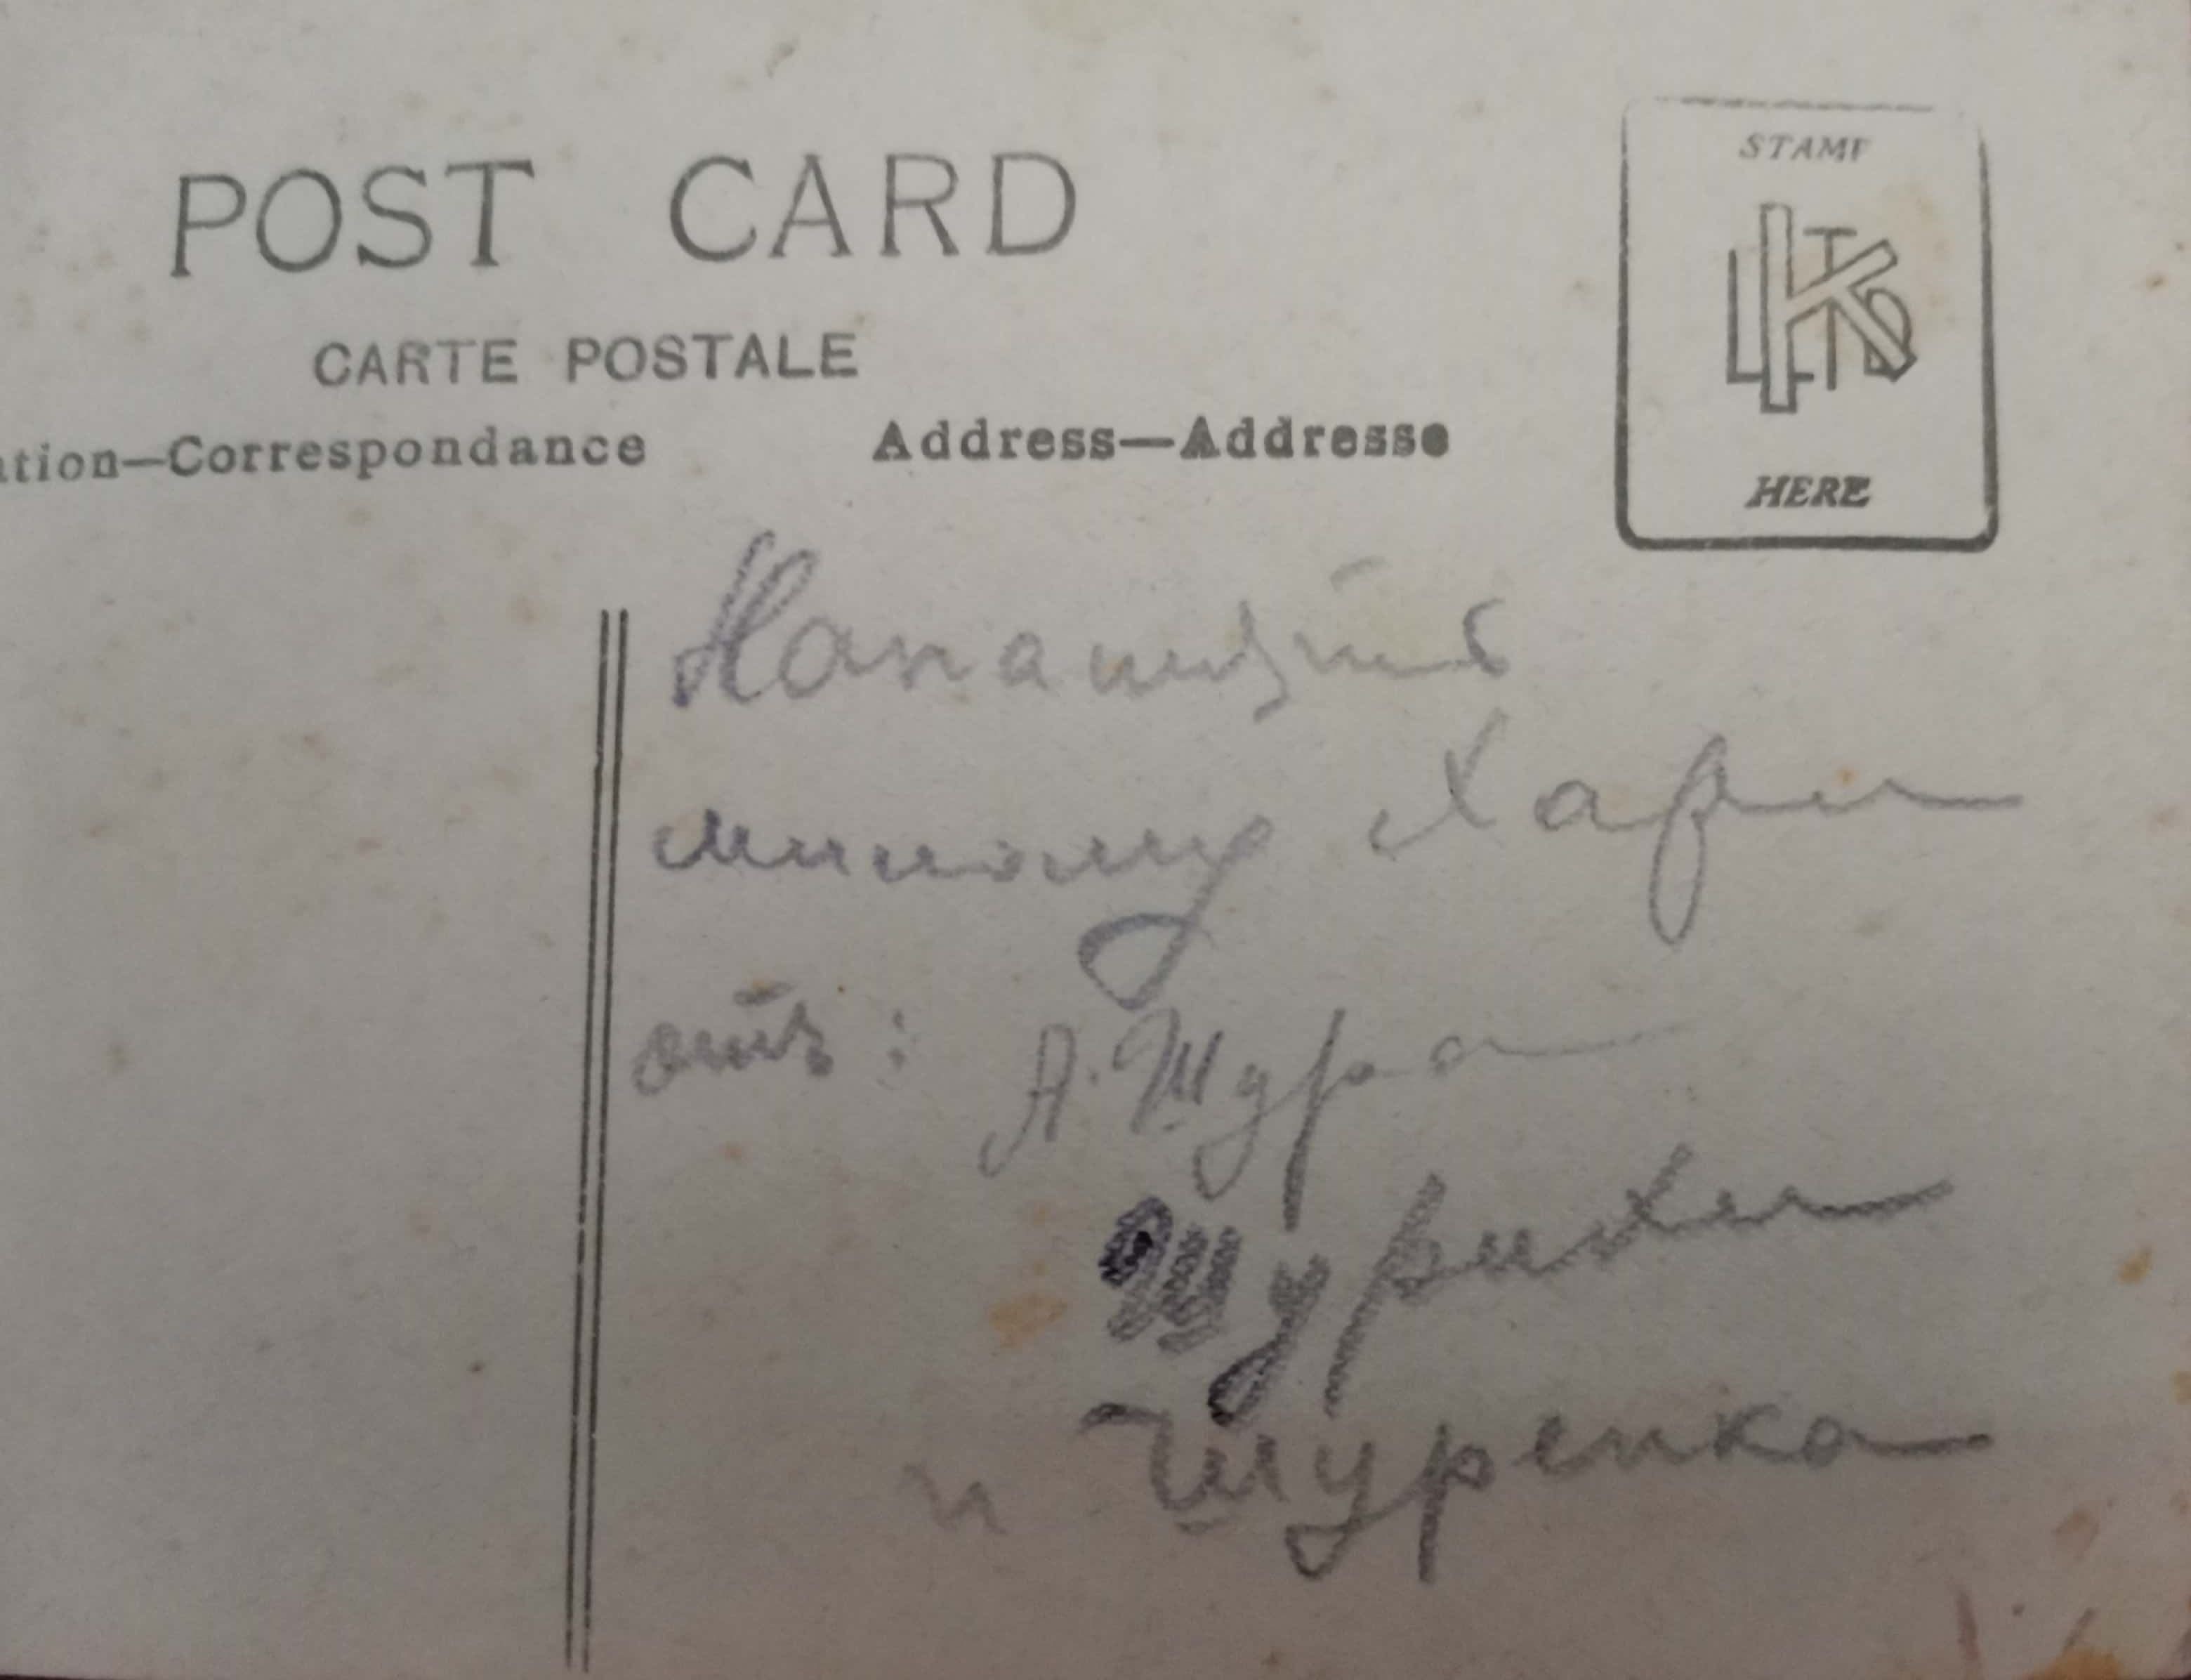 POST CARD
CARTE POSTALE
ation—Correspondance
Address—Addresse
STAMP
KLTD
HERE
милому Хари
отъ: А. Шура
Шурихи
и Шуренка